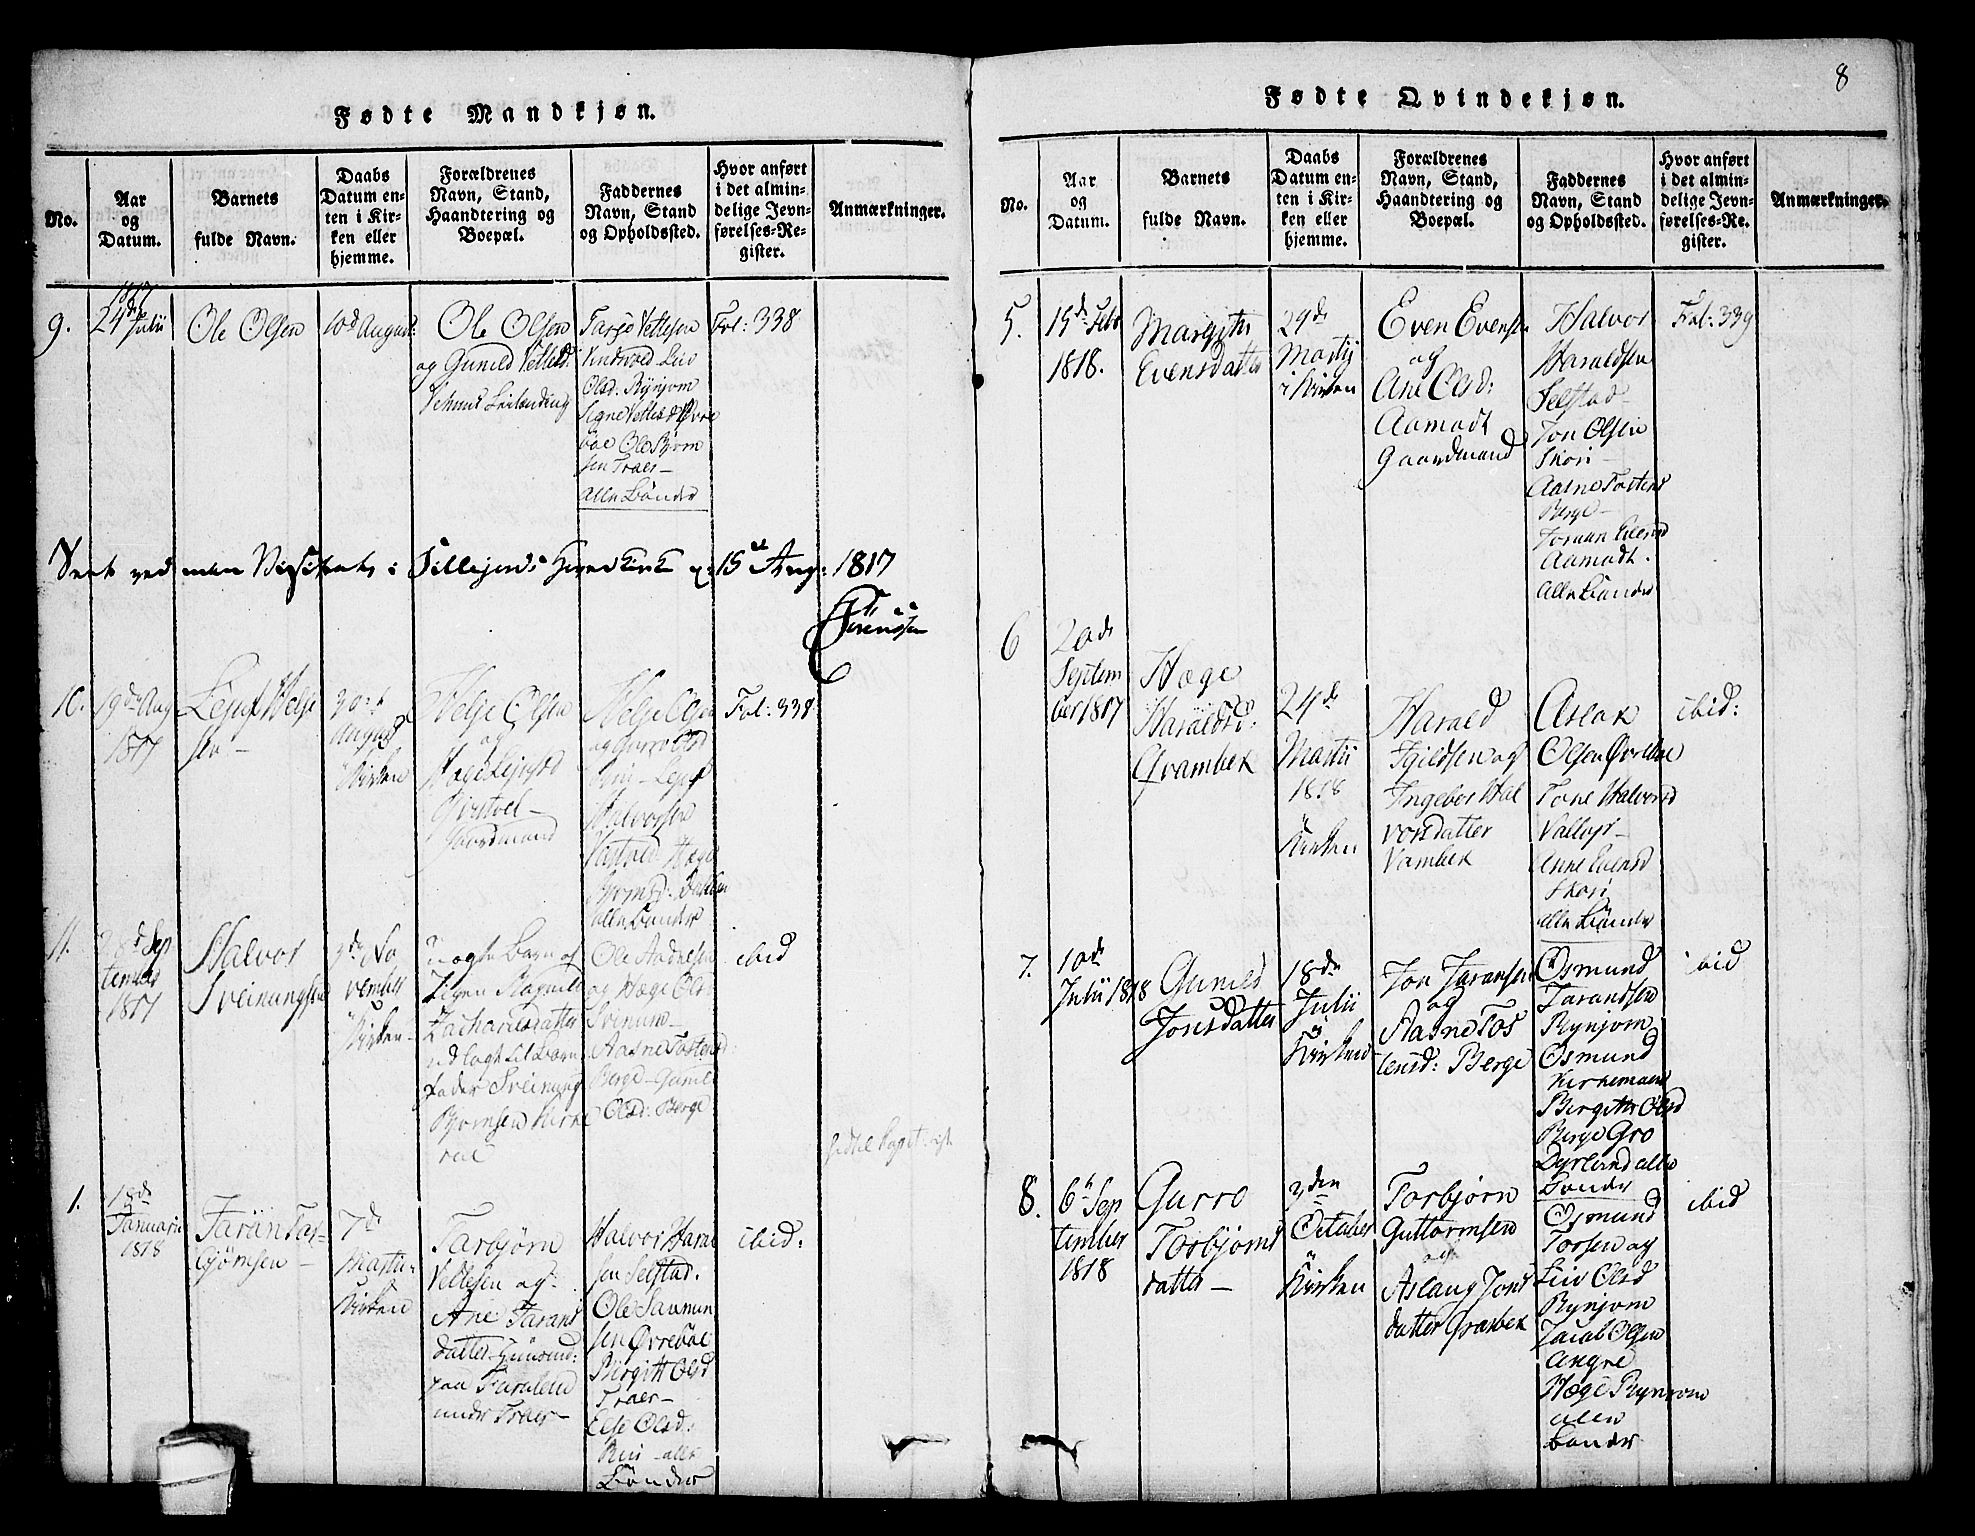 8
Fødte Mandkjøn.
No.
Aar
og
Datum.
Barnets
fulde Navn.
Daabs
Datum en-
ten i Kir-
ken eller
hjemme.
Forældrenes
Navn, Stand,
Haandtering og
Boepæl.
Faddernes
Navn, Stand
og Opholdssted.
Hvor anført
i det almin-
delige Jevn-
førelses-Re-
gister.
Anmærkninger.
9.
1817
24de Julii
Ole Olsen
10d August
Ole Olsen
og Gunild Vetlesd:
Tarje Vettesen
Vindsvold Liv
Olsd: Rynjom
Signe Vettesd Øvre
bøe Ole Bjørn
sen Traer
alle Bønder
Fol: 338
Seet ved min Visitats i Sillejords Hovedkirke d: 15de Aug: 1817
Sørenssen
10.
19de Aug
1817
Lejuf Helje
sen
August
i Kirken
Helje Olsen
og
Hæge Lejufsd
Gaardmand
Helje Olsen
og Gurro Olsd
Lejuf
Halvorsen
Hæge
Bjørnsd: Dahlen
alle Bønder
Fol: 338
11.
28d Sep
tember
1817
Halvor
Sveinungsen
2de No
vember
i Kirken
uægte Barn af
Pigen Ragnild
Zachariesdatter
udlagt til Barne
fader Sveinung
Bjørnsen Kirke
Ole Aadnesen
og Hæge Olsd
Svinum
Aasne Tostensd
Berge Gunil
Olsd: Berge
ibid
1.
18de
Januarii
1818
Taran Tar-
bjørnsen
7d
Martii
i Kirken
Tarbjørn
Vetlesen og
Ane Tarans
datter Huusmd:
paa Furulund
under Traer
Halvor Haral
sen Selstad.
Ole Saamun
sen Øvrebøe
Birgitt Olsd
Traer
Else Olsd:
Rui alle
Bønder
ibid:
Fødte Qvindekjøn.
No.
Aar
og
Datum.
Barnets
fulde Navn.
Daabs
Datum en-
ten i Kir-
ken eller
hjemme.
Forældrenes
Navn, Stand,
Haandtering og
Boepæl.
Faddernes
Navn, Stand
og Opholdssted.
Hvor anført
i det almin-
delige Jevn-
førelses-Re-
gister.
Anmærkninger.
5.
15de Febr
1818.
Margithe
Evensdatter
29de
Martij
i Kirken
Even Evensen
og
Ane Olsd:
Aamodt
Gaardmand
Halvor
Haraldsen
Selstad
Jon Olsen
Skori
Aasne Tostens
Berge
Joraan Evensd
Aamodt.
alle Bønder
Fol: 339
6
20de
Septem
ber 1817
Hæge
Haraldsd:
Qvambek
24de
Martii
1818
i Kirken
Harald
Kjeldsen og
Ingebor Hal
vorsdatter
Vambek
Aslak
Olsen Øvrebøe
Tone Halvorsd
Anne Evensd
Skori
alle Bønder
ibid:
7.
10de
Julii 1818
Gunild
Jonsdatter
18de
Julii
i Kirken
Jon Taransen
og
Aasne Tos
tensd: Berge
Osmund
Tarandsen
Rynjom
Osmund
Kirkemoen
Bergithe Olsd
Berge Gro
Dyrland alle
Bønder
ibid
8.
6te Sep
tember
1818
Gurro
Torbjørns
datter
3den
October
i Kirken
Torbjørn
Guttormsen
og
Aslaug Jons
datter Græsbek
Osmund
Torsen og
Liv Olsd
Rynjom
Jacob Olsen
Hæge Rynjom
alle
Bønder
ibid